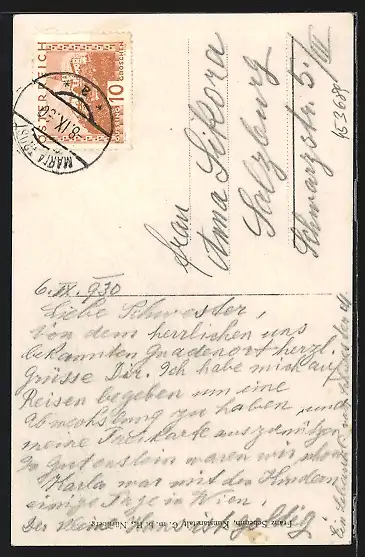 ÖSTERREICH
10
GROSCHEN
MARIA
8.IX.30
* a *
Frau
Anna Sikora
Salzburg
Schwarzstr. 5/III
6. IX. 930
Liebe Schwester,
Von dem herrlichen uns
bekannten Gnadenort herzl.
Grüsse Dir. Ich habe mich auf
Reisen begeben um eine
Abwechslung zu haben und
meine Freikarte auszunützen.
In Gutenstein waren wir schon
Karla war mit den Kindern
einige Tage in Wien.
Franz Schemm, Kunstanstalt, G. m. b. H., Nürnberg